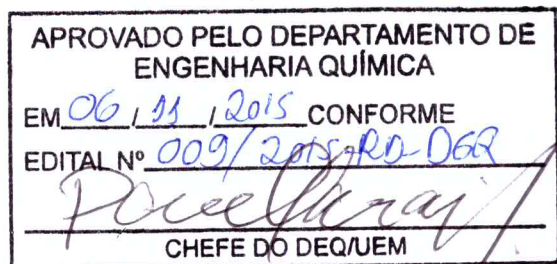 APROVADO PELO DEPARTAMENTO DE
ENGENHARIA QUÍMICA
EM 06 / 11 / 2015 CONFORME
EDITAL Nº 009/2015-RD-DEQ
CHEFE DO DEQ/UEM